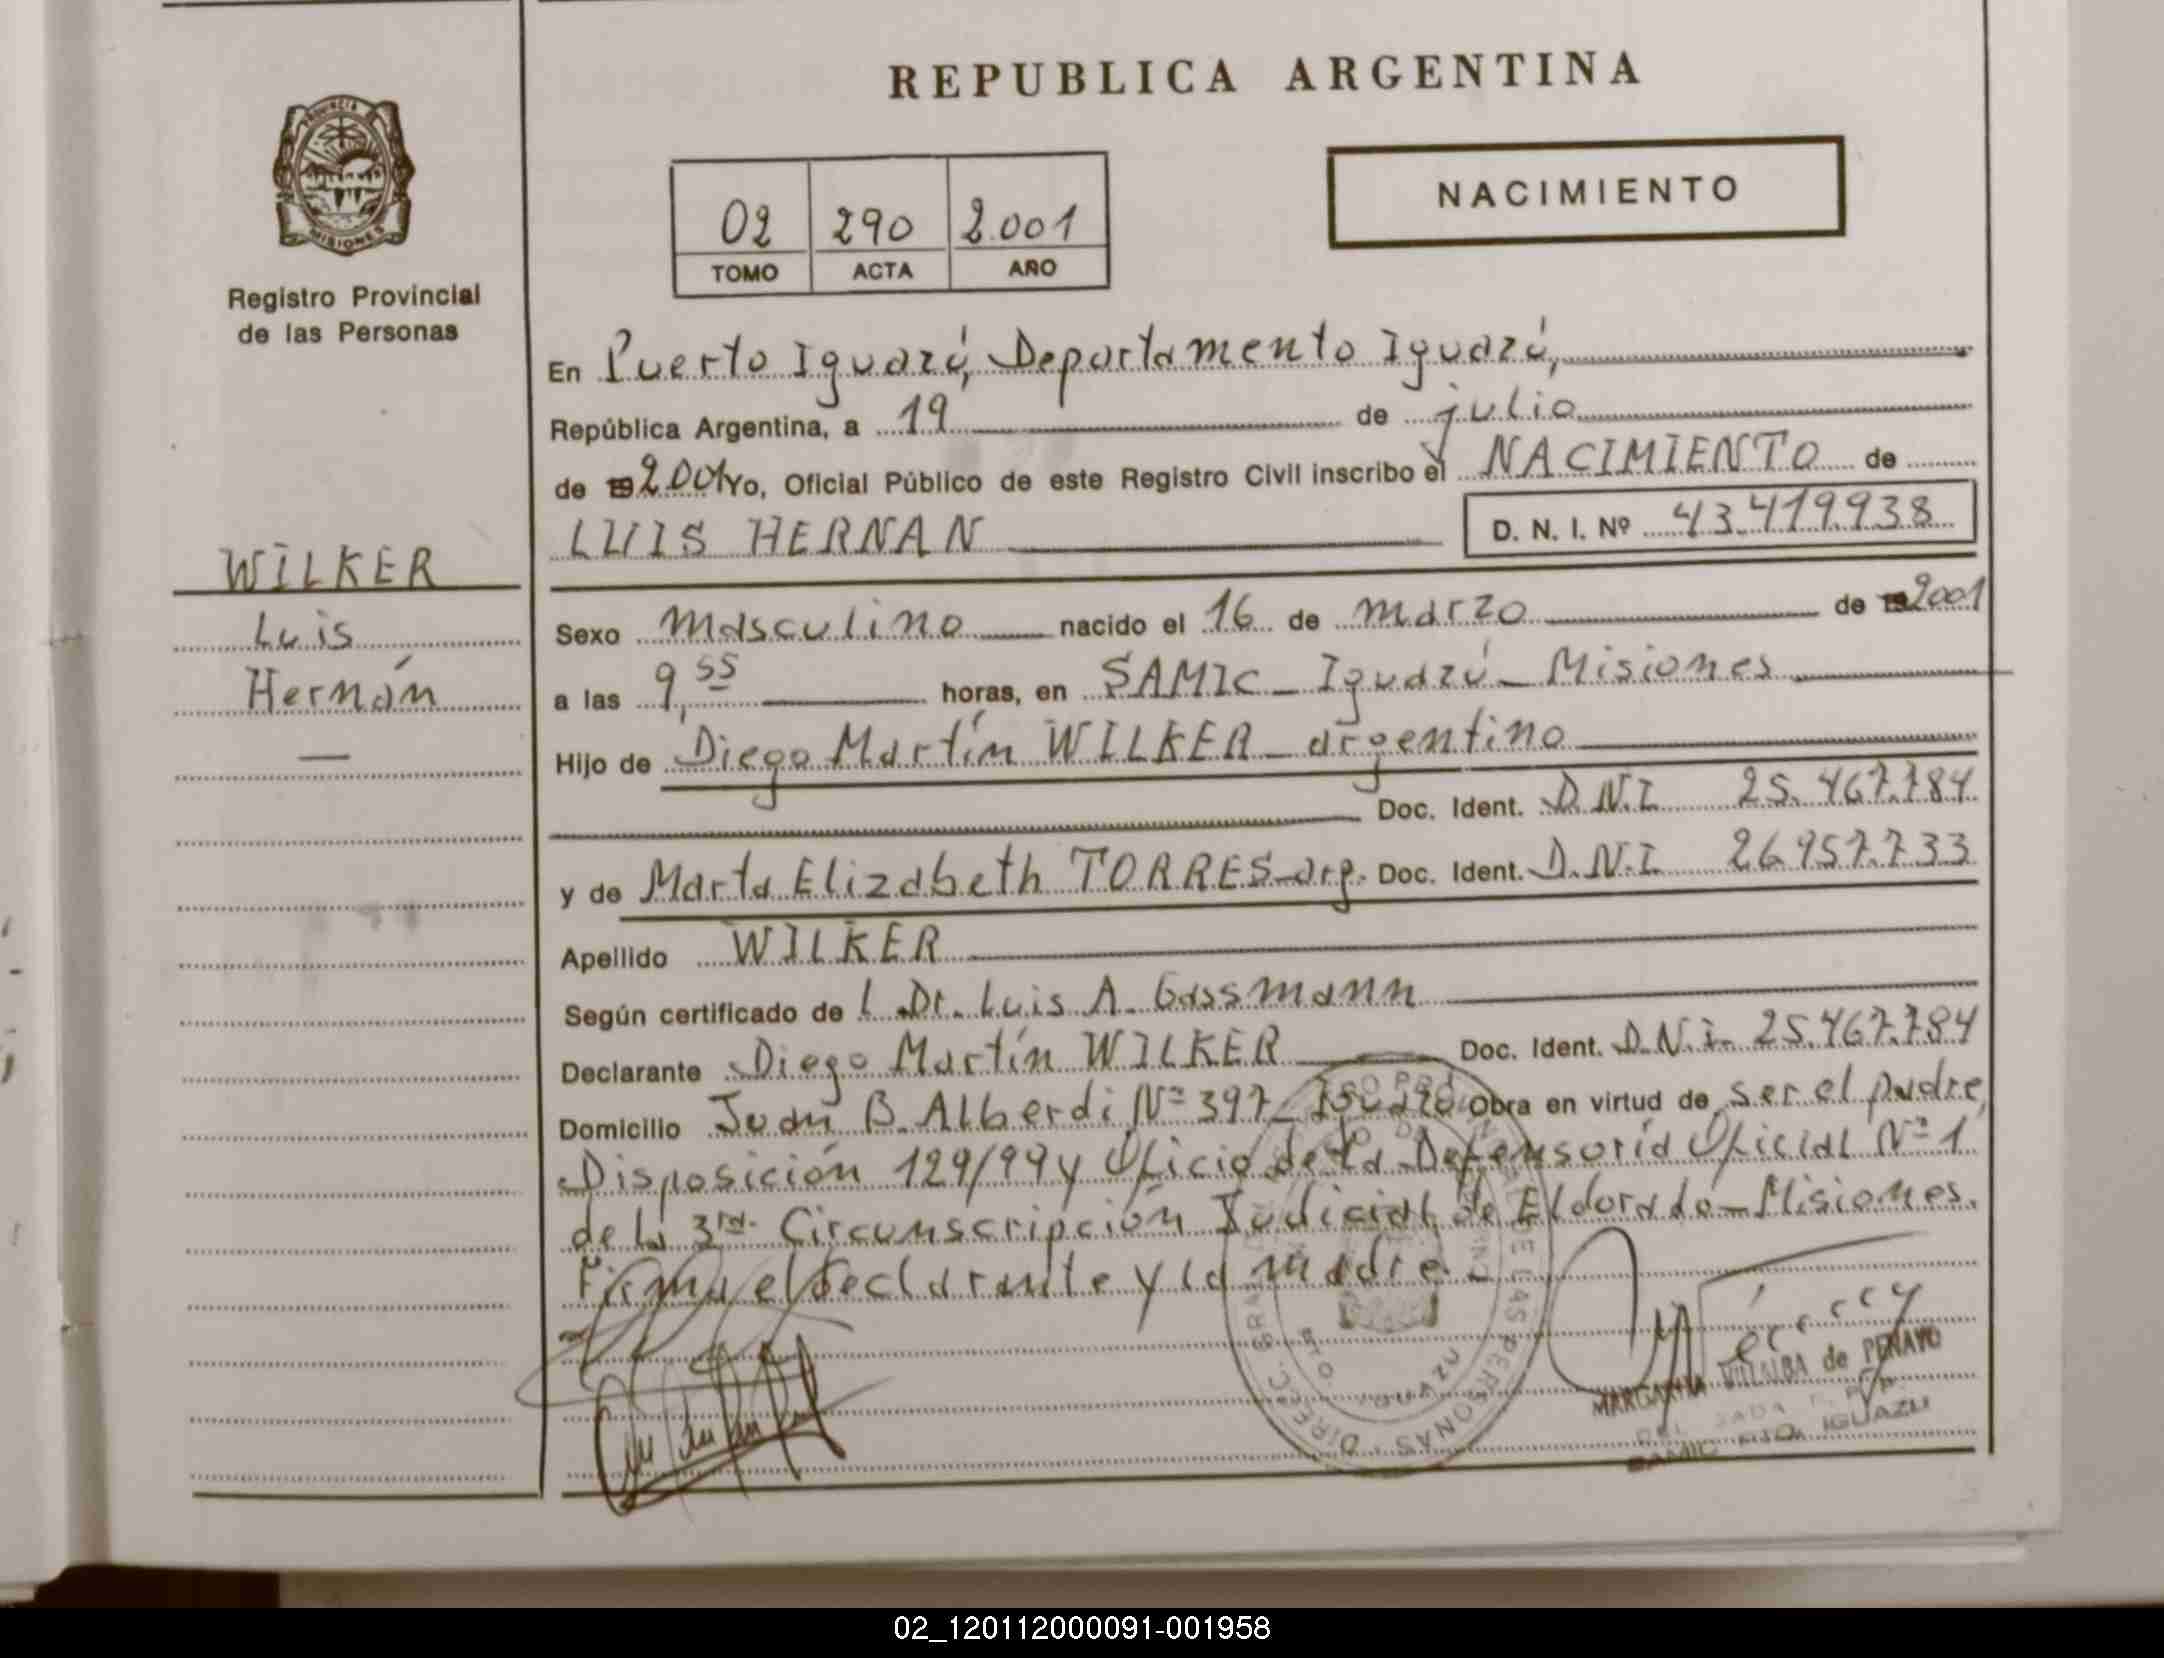 REPUBLICA ARGENTINA
PROVINCIA
MISIONES
Registro Provincial
de las Personas
NACIMIENTO
02 290 2.001
TOMO ACTA AÑO
En Puerto Iguazú, Departamento Iguazú,
República Argentina, a 19 de julio
de 19 2001 Yo, Oficial Público de este Registro Civil inscribo el NACIMIENTO de
LUIS HERNAN D. N. I. Nº 43.419.938
WILKER
Luis
Hernán
Sexo masculino nacido el 16 de marzo de 19 2001
a las 9,55 horas, en SAMIC - Iguazú - Misiones
Hijo de Diego Martín WILKER - argentino
Doc. Ident. D.N.I 25.467.784
y de Marta Elizabeth TORRES - arg. Doc. Ident. D.N.I 26.957.733
Apellido WILKER
Según certificado de l Dr. Luis A. Gassmann
Declarante Diego Martín WILKER Doc. Ident. D.N.I. 25.467.784
Domicilio Juan B. Alberdi Nº 397 - Iguazú Obra en virtud de ser el padre,
Disposición 129/99 y Oficio de la Defensoría Oficial Nº 1
de la 3ra. Circunscripción Judicial de Eldorado - Misiones.
Firma el declarante y la madre.
MARGARITA VILLALBA de PENAYO
SAMIC PTO. IGUAZU
02_120112000091-001958